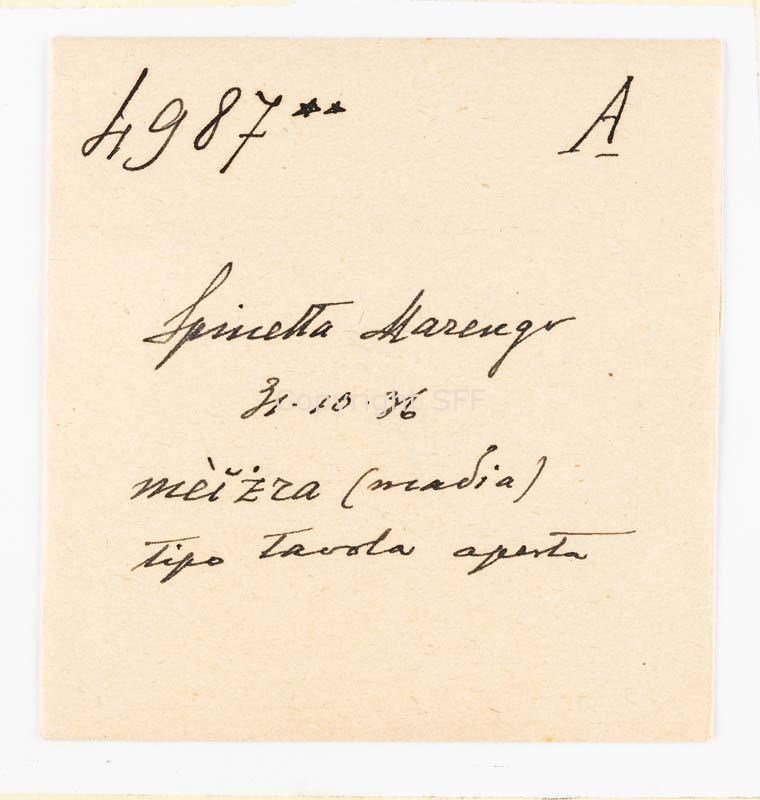 4987** A
Spinetta Marengo
31·10·36
mèĭżra (madia)
tipo tavola aperta